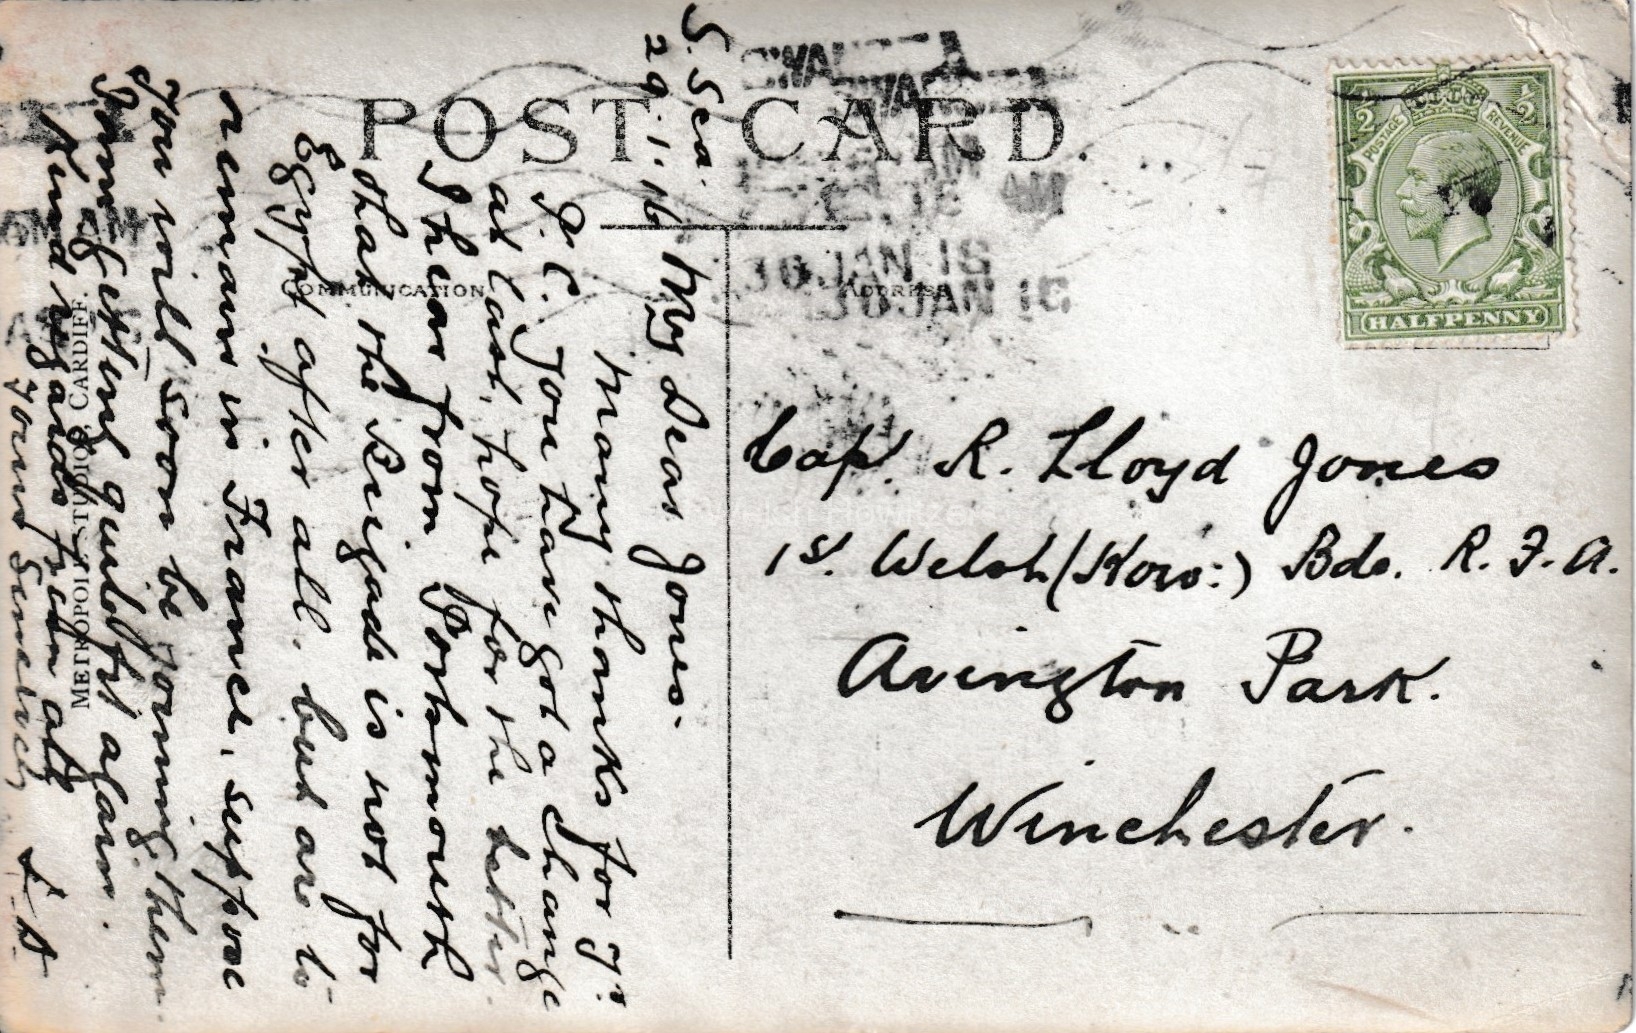 POST CARD.
COMMUNICATION
ADDRESS
METROPOLE STUDIOS, CARDIFF.
POSTAGE
REVENUE
1/2
1/2
HALFPENNY
30 JAN 16
30 JAN 16
AM
S. Sea.
29.1.16
My Dear Jones.
Many thanks for yr.
P.C. You have got a change
at last, hope for the better.
I hear from Portsmouth
that the Brigade is not for
Egypt after all. but are to
remain in France, suppose
you will soon be joining them.
getting quite fit again.
Kind regards from all
Yours Sincerely
Cap. R. Lloyd Jones
1st. Welsh (How:) Bde. R.F.A.
Avington Park.
Winchester.